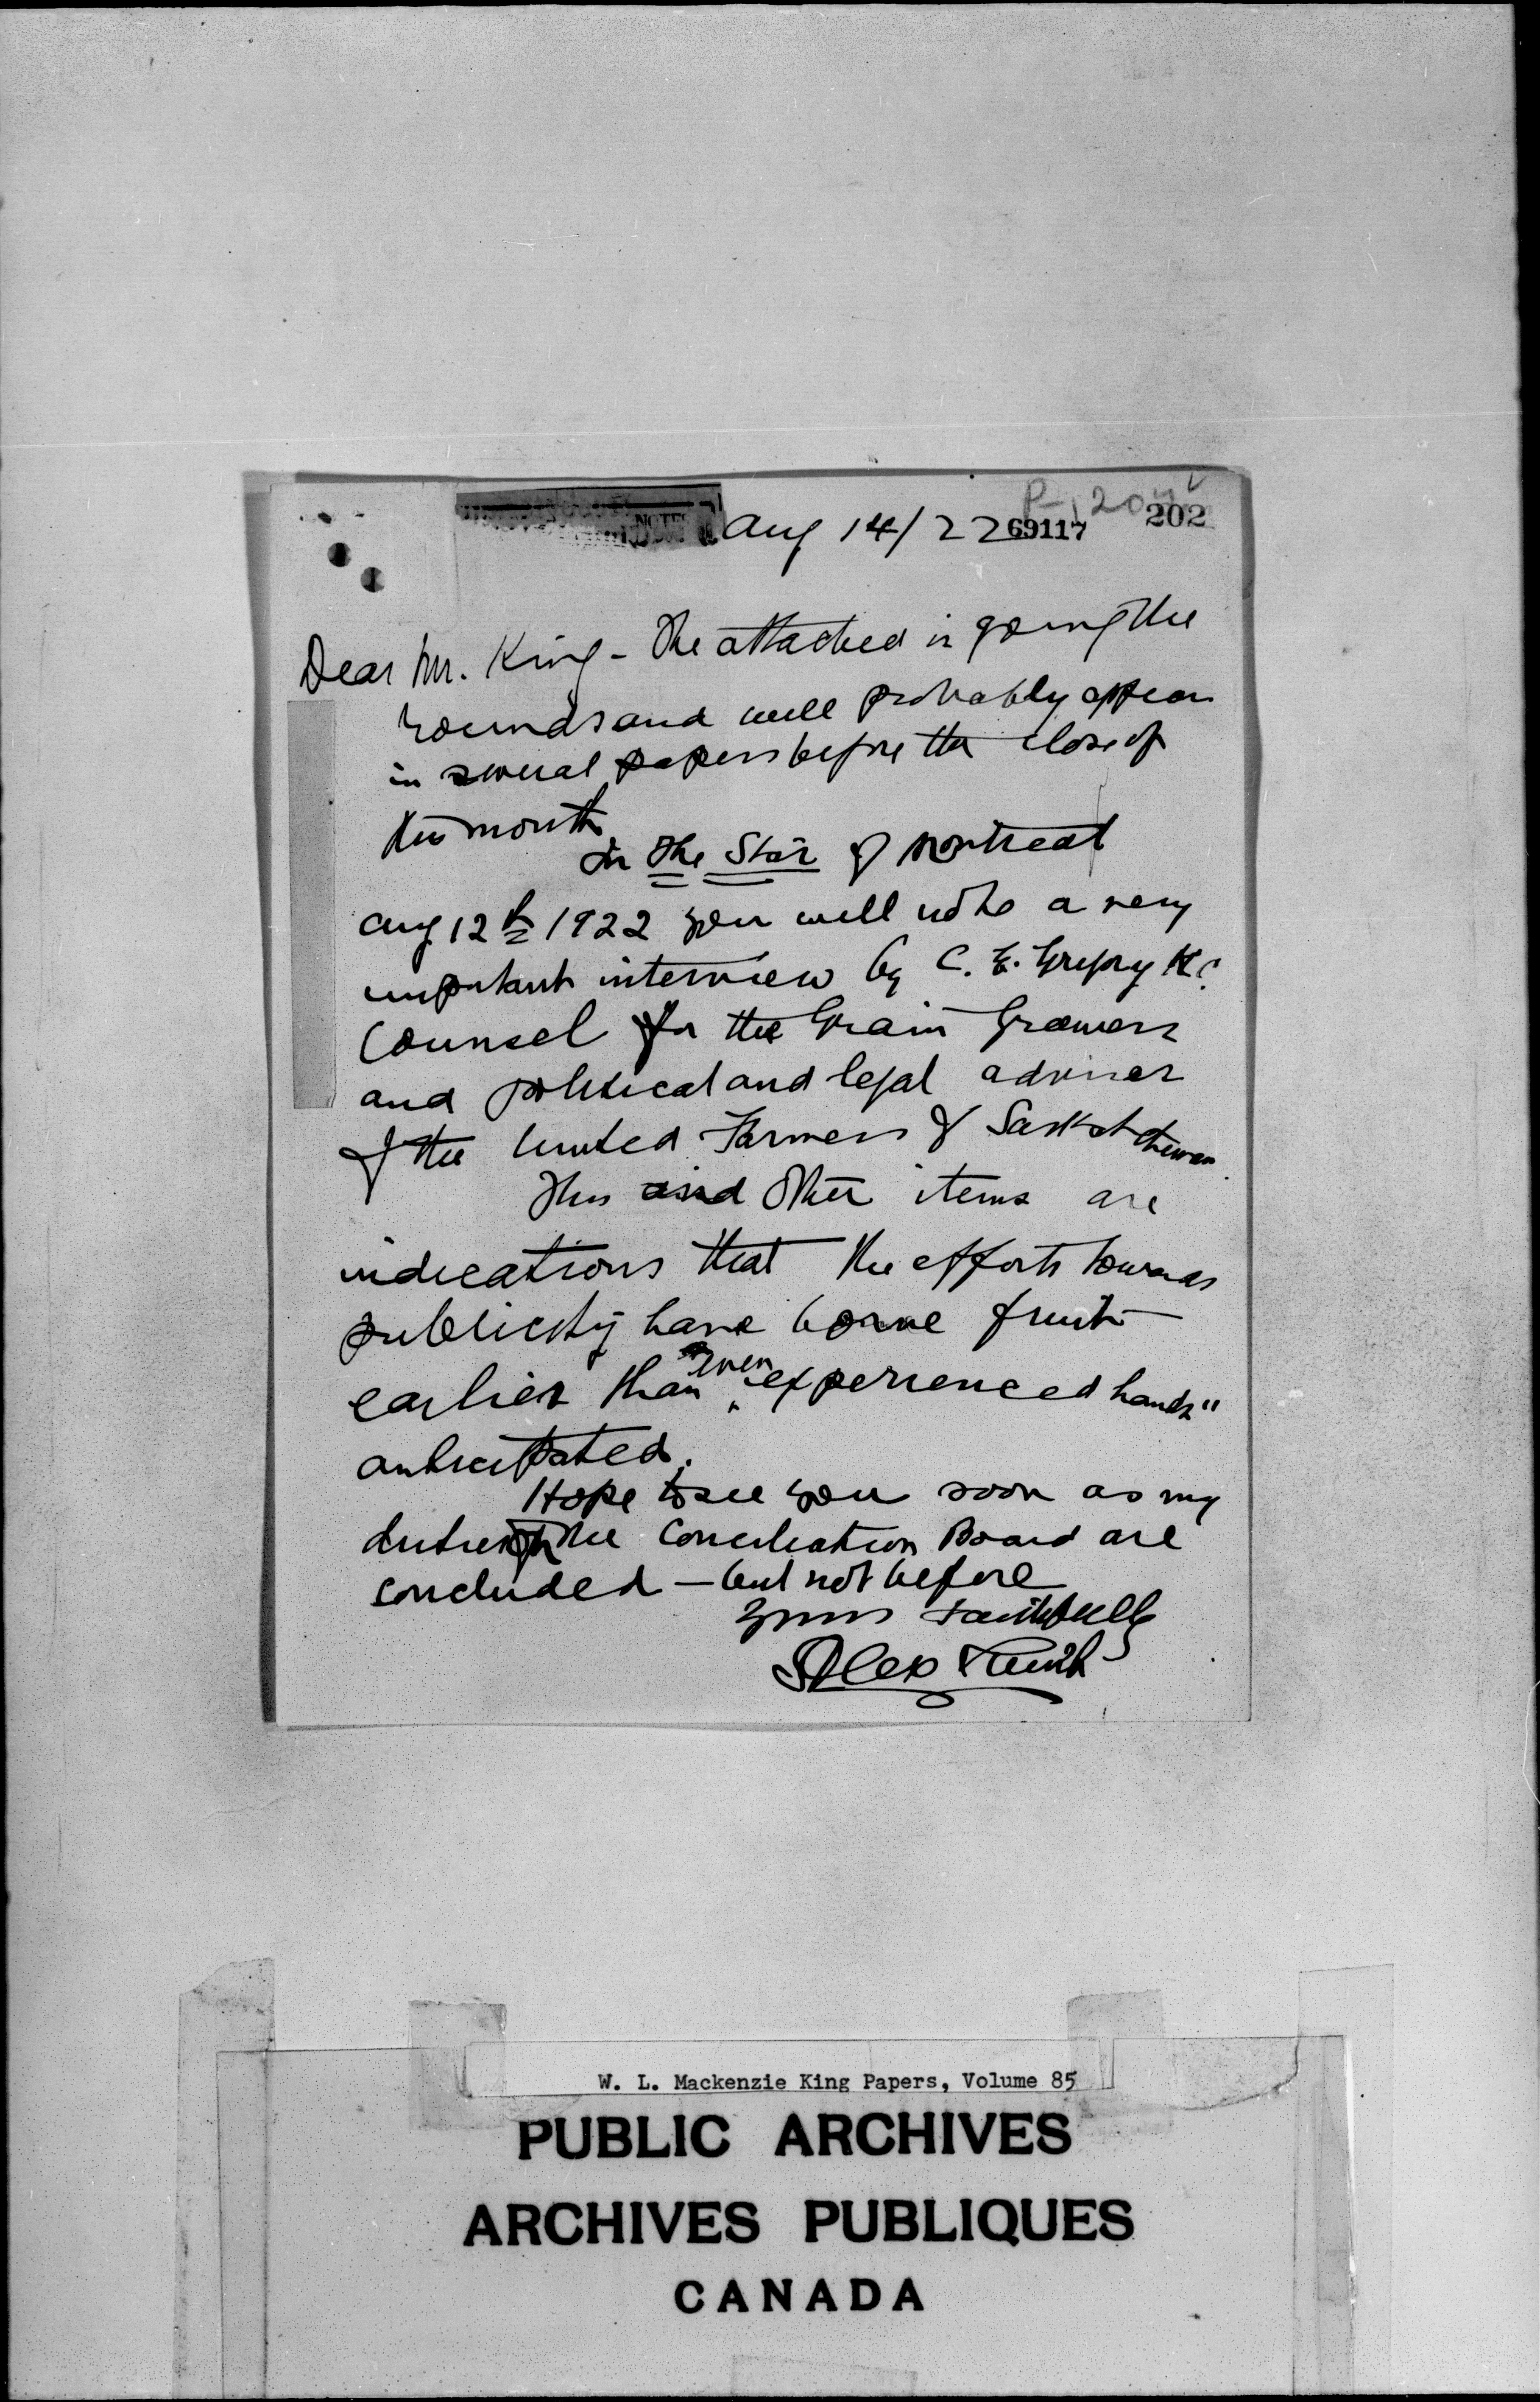 NOTES
Aug 14/22 69117 P-1204 202
Dear Mr. King - The attached is going the
rounds and will probably appear
in several papers before the close of
this month
In The Star of Montreal
Aug 12th 1922 you will note a very
important interview by C. E. Gregory K.C.
Counsel for the Grain Growers
and political and legal adviser
of the United Farmers of Saskatchewan
This and other items are
indications that the efforts towards
publicity have borne fruit
earlier than even "experienced hands"
anticipated.
Hope to see you soon as my
duties on the Conciliation Board are
concluded — but not before
Yours faithfully
Alex Smith
W. L. Mackenzie King Papers, Volume 85
PUBLIC ARCHIVES
ARCHIVES PUBLIQUES
CANADA